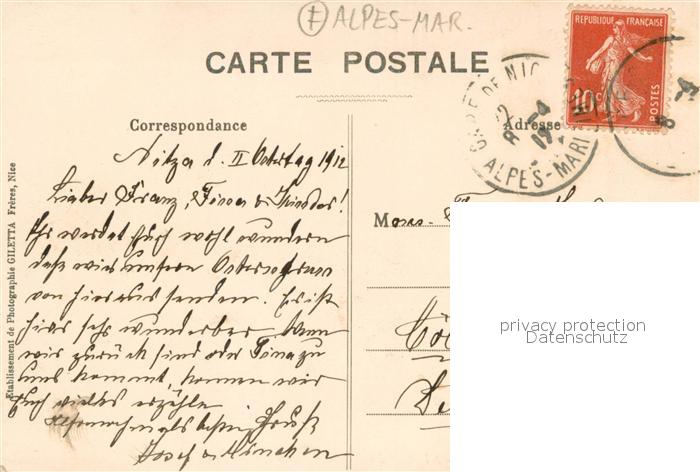 ALPES-MAR.
CARTE POSTALE
REPUBLIQUE FRANÇAISE
10c
POSTES
GARE DE NIC
ALPES-MARI
Correspondance
Adresse
Nitza d. II Ostertag 1912
Lieber Franz, Tinna &
Ihr werdet Euch wohl wundern
daß wir unsern Ostergruss
von hier aus senden. Es ist
hier sehr wunderbar, wenn
wir zurück sind oder Tina zu
uns kommt, können wir
Euch vieles erzählen
Gruß
Josef
Etablissement de Photographie GILETTA Frères, Nice
privacy protection
Datenschutz